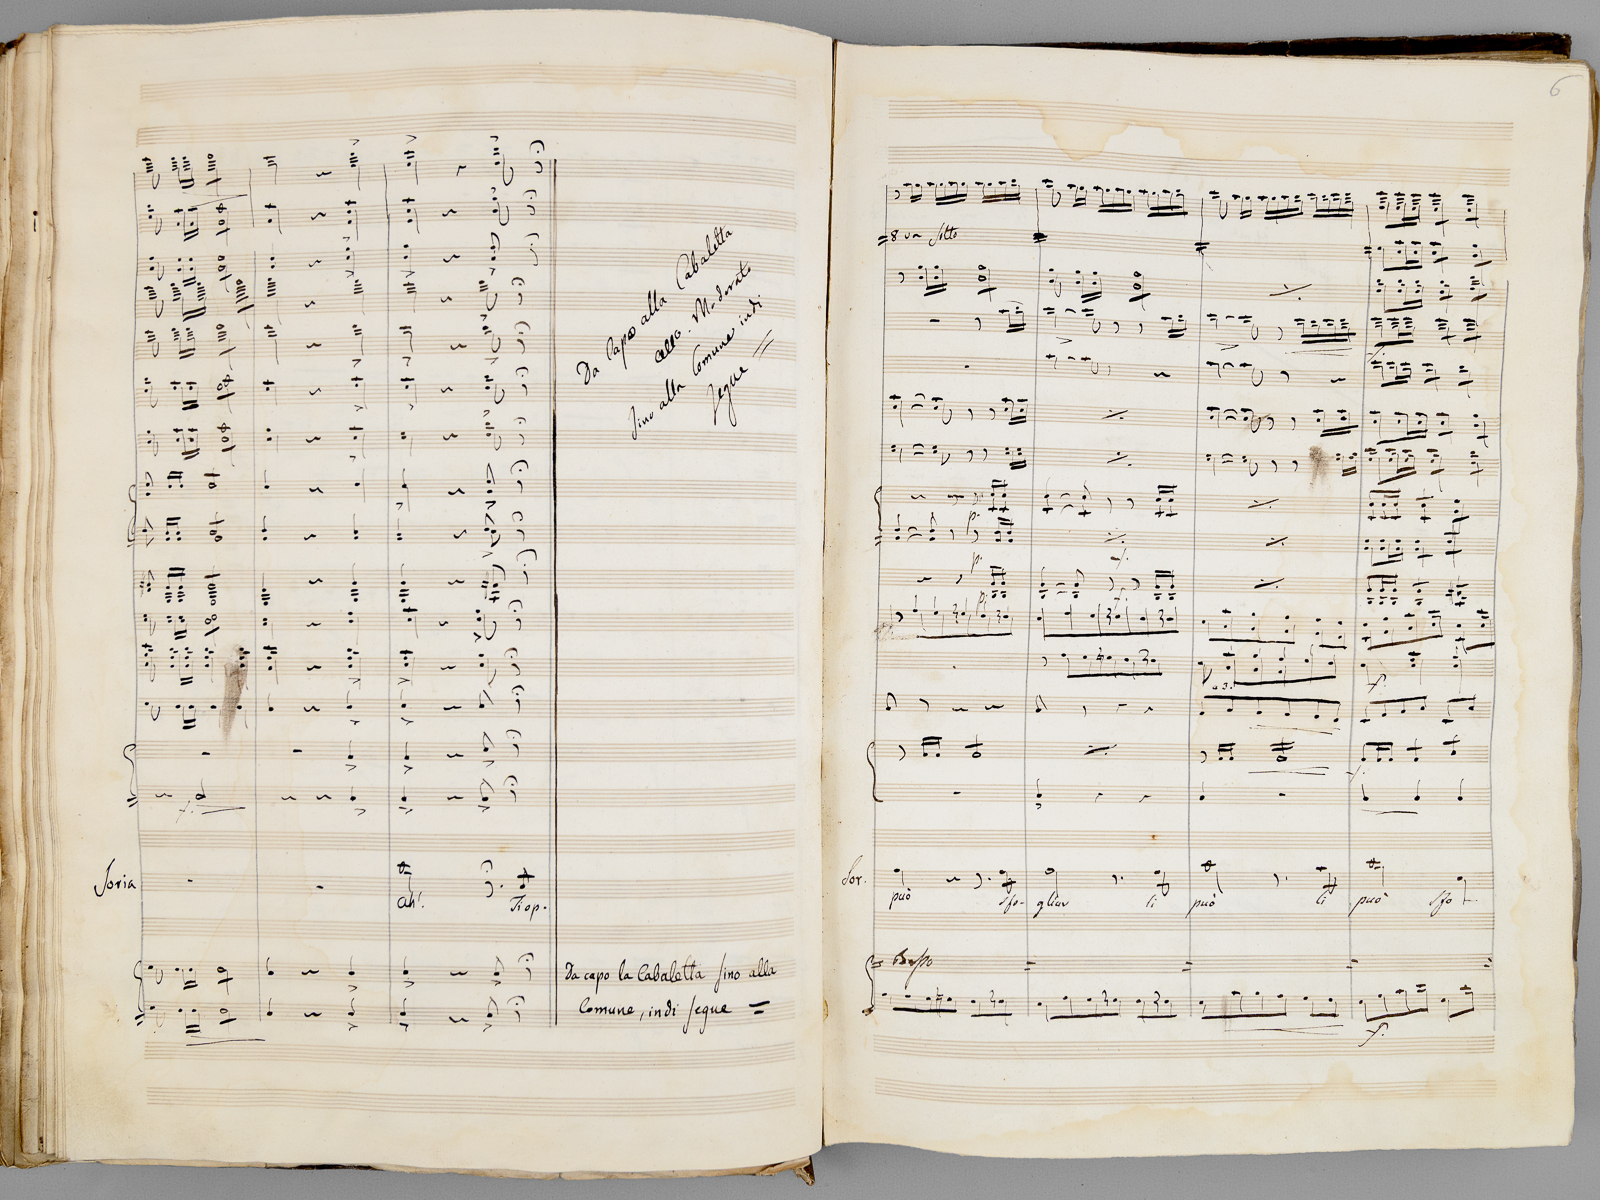 Da Capo alla Cabaletta
allo. Moderato
sino alla Comune indi
segue
Soria
ah!.
Ti op-
Da capo la Cabaletta sino alla
Comune, indi segue =
6
8 va sotto
p.
p.
p.
a 3.
f.
Sor.
può sfo- gliar li può li può sfo
Basso
f.